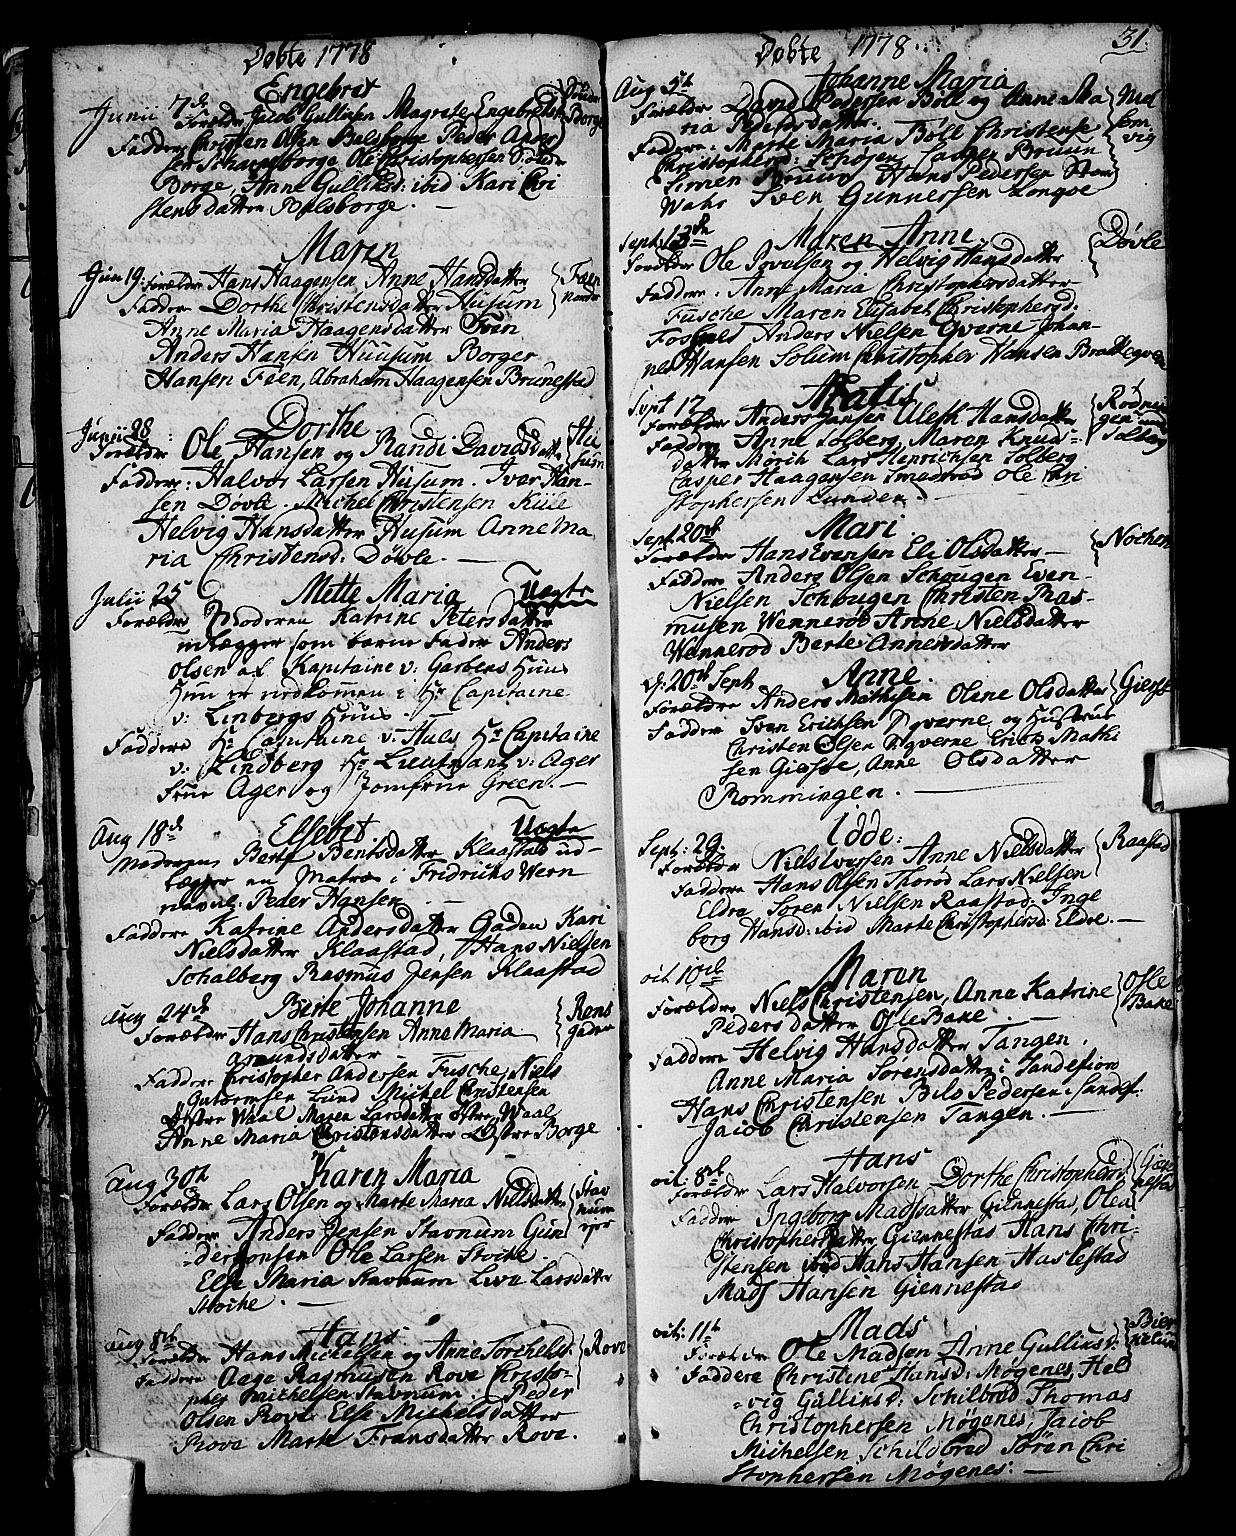 Døbte 1778
Engebret
Junii 7de Forældr Jacob Gullisen Magrete Engebretsd
Faddere Christen Olsen Bolsborge Peder Ander
sen Schaugsborge Ole Christophersen
Borge, Anne Gulliksd: ibid Kari Chri
stensdatter Bolsborge.
Maren
Jun 19. Forældr Hans Haagensen Anne Hansdatter Føen
Faddere Dorthe Christensdatter Huusum
Anne Maria Haagensdatter Føen
Anders Hansen Huusum Borger
Hansen Føen, Abraham Haagensen Brunestad
Dorthe
Junii 28: Forældr Ole Hansen og Randi Davidsdatter Husum
Faddere: Halvor Larsen Husum. Iver Han-
sen Døvle. Michel Christensen Kiile
Helvig Hansdatter Husum Anne Ma
ria Christensd: Døvle.
Julii 25 Mette Maria Uægte
Forældre Moderen Katrine Petersdatter
udlægger som barne Fader Anders
Olsen af Kapitaine v: Garbens Huus
Hun er nedkommen i Hr Capitaine
v: Linbergs Huus.
Faddere Hr Capitaine v: Huls Hr Capitaine
v: Lindberg Hr Lieutnant v: Ager
Frue Ager og Jomfrue Green.
Aug 18de Elsebet Uægte
Moderen Berte Bentsdatter Klaastad ud-
lægger en Matros i Fridrichs Wern
navnl: Peder Hansen
Faddere Katrine Andersdatter Gaden Kari
Nielsdatter Klaastad, Hans Nielsen
Schalberg Rasmus Jensen Klaastad
Aug 24de Berte Johanne
Forældr Hans Christensen Anne Maria Rens
gaden
Amundsdatter
Faddere Christopher Andersen Fusche, Niels
Guttormsen Lund Michel Christensen
Østre Waal Maren Larsdatter Østre Waal
Anne Maria Christensdatter Østre Borge
Aug 30th Karen Maria
Forældr Lars Olsen og Marte Maria Nielsdatter Stav
num
Faddere Anders Jensen Stavnum Gun
derJonsen Ole Larsen Stoche
Else Maria Stavnum Live Larsdatter
Stoche.
Hans
Aug Forældr Hans Michelsen og Anne Torchelsd: Rove
Faddere Aage Rasmusen Rove Christo-
pher Michelsen Stavnum. Peder
Olsen Rove Else Michelsdatter
Rove Marte Fransdatter Rove.
Døbte 1778. 31
Johanne Maria
Aug Forældr David Pedersen Bøll og Anne Ma Mel
ria Pedersdatter. som
vig
Faddere: Marte Maria Bøll Christense
Christophersd: Casper Bruun
Simen Bruun Hans Pedersen
Sven Gunnersen
Sept 13de Maren Anne. Døvle
Forældr Ole Povelsen og Helvig Hansdatter
Faddere: Anne Maria Christophersdatter
Fusche Maren Elisabet Christophersd:
Fossnes Anders Nielsen Qverne Johan-
nes Hansen Solum Christopher Hansen Brattegve
Matis
Sept 17 Forældr Anders Jansen Aleth Hansdatter
Faddere Anne Solberg, Maren Knud= Solberg
datter Mørch Lars Henrichsen Solberg
Casper Haagensen Ole Chri
stophersen Lunden.
Mari
Sept 20de Forældr Hans Evensen Eli Olsdatter Nochen
Faddere Anders Olsen Schougen Even
Nielsen Schougen Christen Ras-
musen Wennerød Anne Nielsdatter
Wennerød Berte Annersdatter
d: 20th Sept Anne. Gierse
Forældre Anders Mathisen Olene Olsdatter
Faddere Sven Erichsen Qverne og Hustrue
Christen Olsen Qverne Erich Mathi
sen Giersøe, Anne Olsdatter
Rommingen.
Sept: 29. Idde: Raastad
Forældr Niels Iversen Anne Nielsdatter
Faddere Hans Olsen Thorød Lars Nielsen
Eldre Søren Nielsen Raastad Inge
borg Hansd: ibid Marte Christophersd: Eldre.
oct. 10de Maren
Forældr Niels Christensen, Anne Katrine Ofle
Bake
Pedersdatter OfleBake
Faddere Helvig Hansdatter Tangen.
Anne Maria Sørensdatter i Sandefiord
Hans Christensen Bils Pedersen i Sandef.
Jacob Christensen Tangen.
Hans
oct. Forældr Lars Halvorsen Dorthe Christophersd: Gien
nestad
Faddere Ingeborg Madsdatter Giennestad, Olea
Christophersdatter Giennestad Hans Chri-
stensen ibid Hans Hansen Haslestad
Mads Hansen Giennestad
Mads
oct: 11th Forældr Ole Madsen Anne Gulliksd: Bier
Faddere Christine Hansd: Møgenes Hel
vig Gulliksd: Schilbred Thomas
Christophersen Møgenes, Jacob
Michelsen Schildbred Søren Chri
stophersen Møgenes: